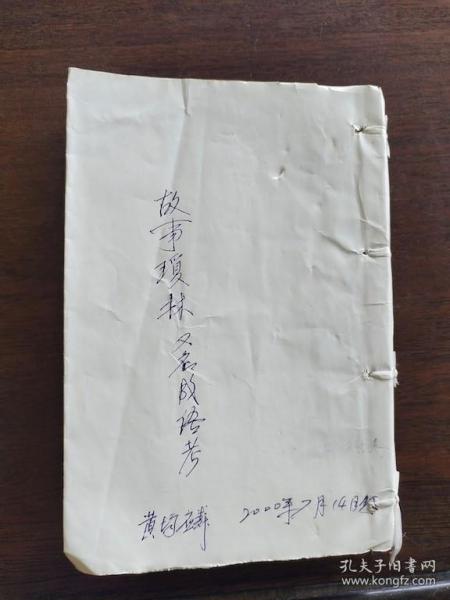 故事琼林又名成语考
黄均麟 2000年7月14日
孔夫子旧书网
www.kongfz.com